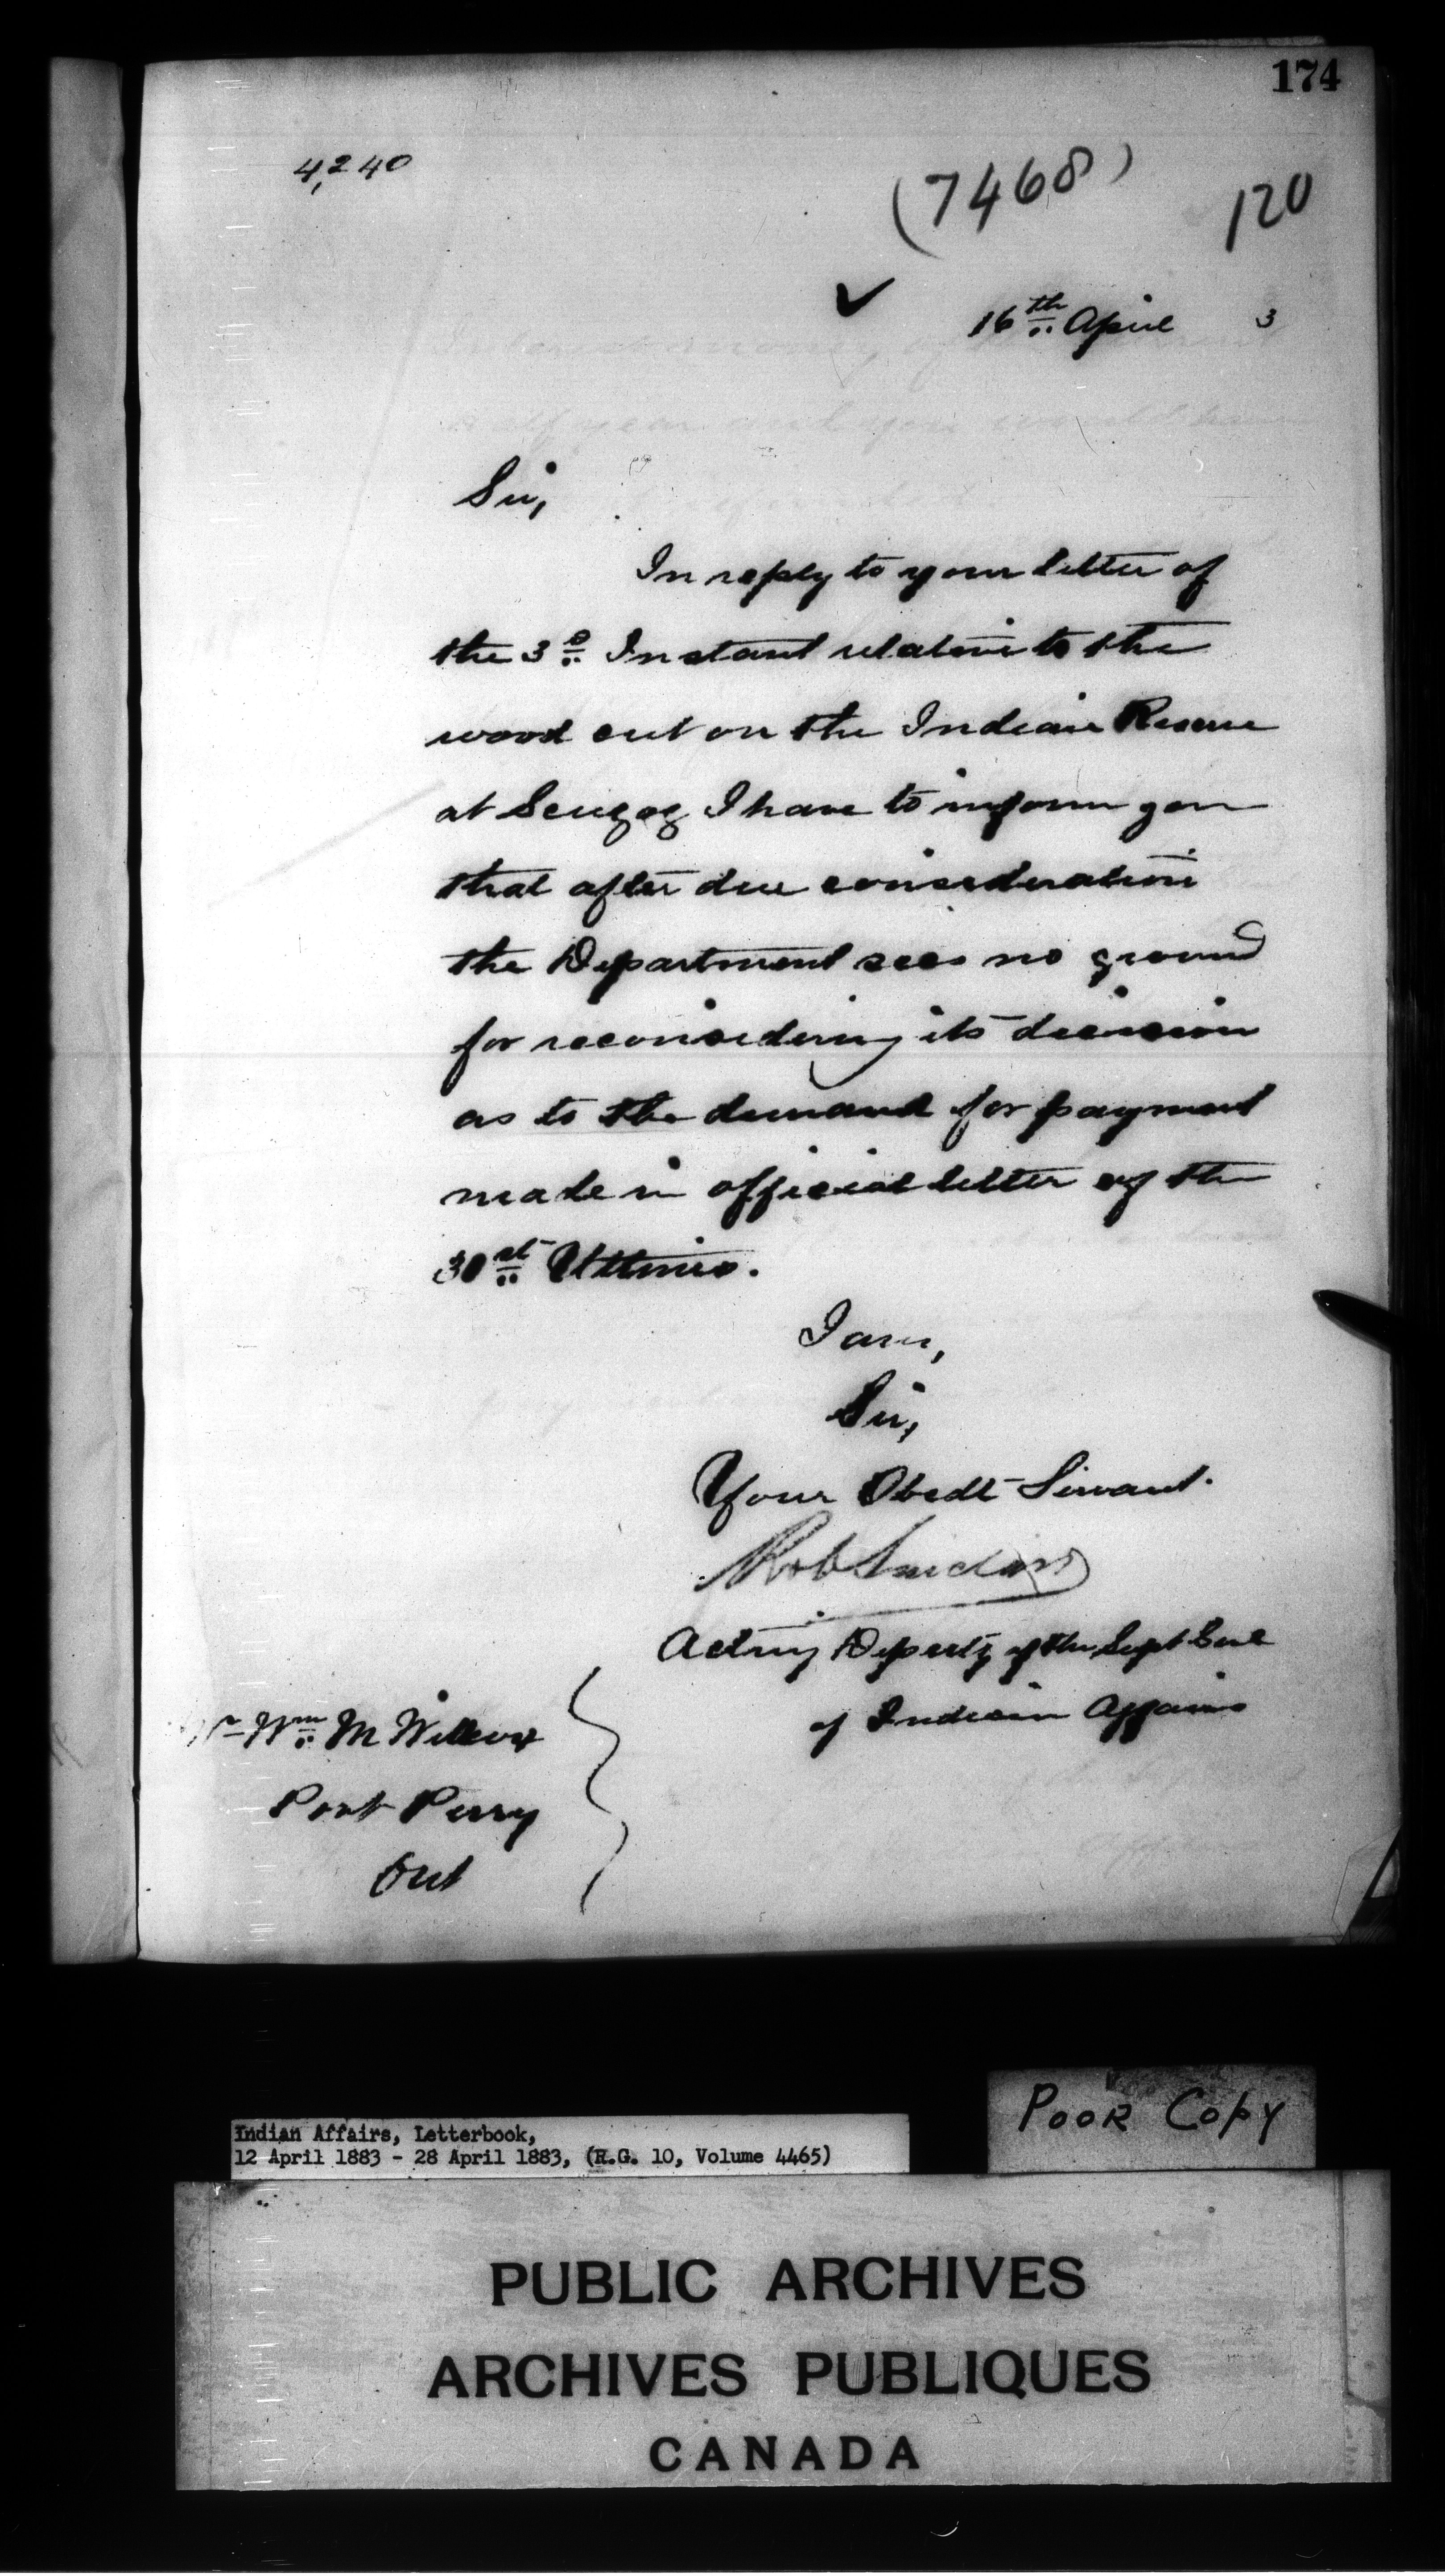 174
4,240
(7468)
120
16th April 3
Sir,
In reply to your letter of
the 3d Instant relative to the
wood cut on the Indian Reserve
at Scugog I have to inform you
that after due consideration
the Department sees no ground
for reconsidering its decision
as to the demand for payment
made in official letter of the
30st Ultimo.
I am,
Sir,
Your Obedt Servant.
Rob Sinclair
Acting Deputy of the Supt Genl
of Indian Affairs
Mr Wm M Willcox
Port Perry
Ont
Poor Copy
Indian Affairs, Letterbook,
12 April 1883 - 28 April 1883, (R.G. 10, Volume 4465)
PUBLIC ARCHIVES
ARCHIVES PUBLIQUES
CANADA